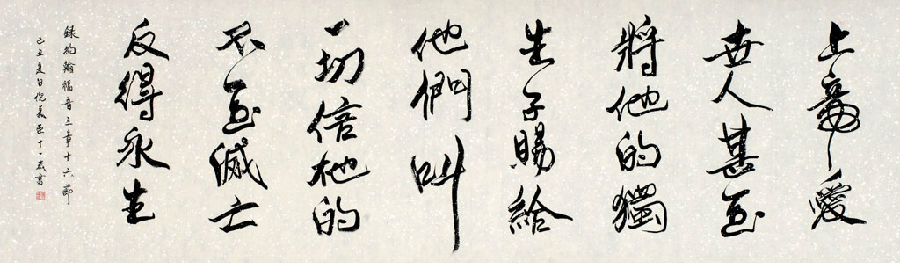 上帝愛
世人甚至
將他的獨
生子賜給
他們叫
一切信祂的
不至滅亡
反得永生
錄約翰福音三章十六節
己丑夏日書